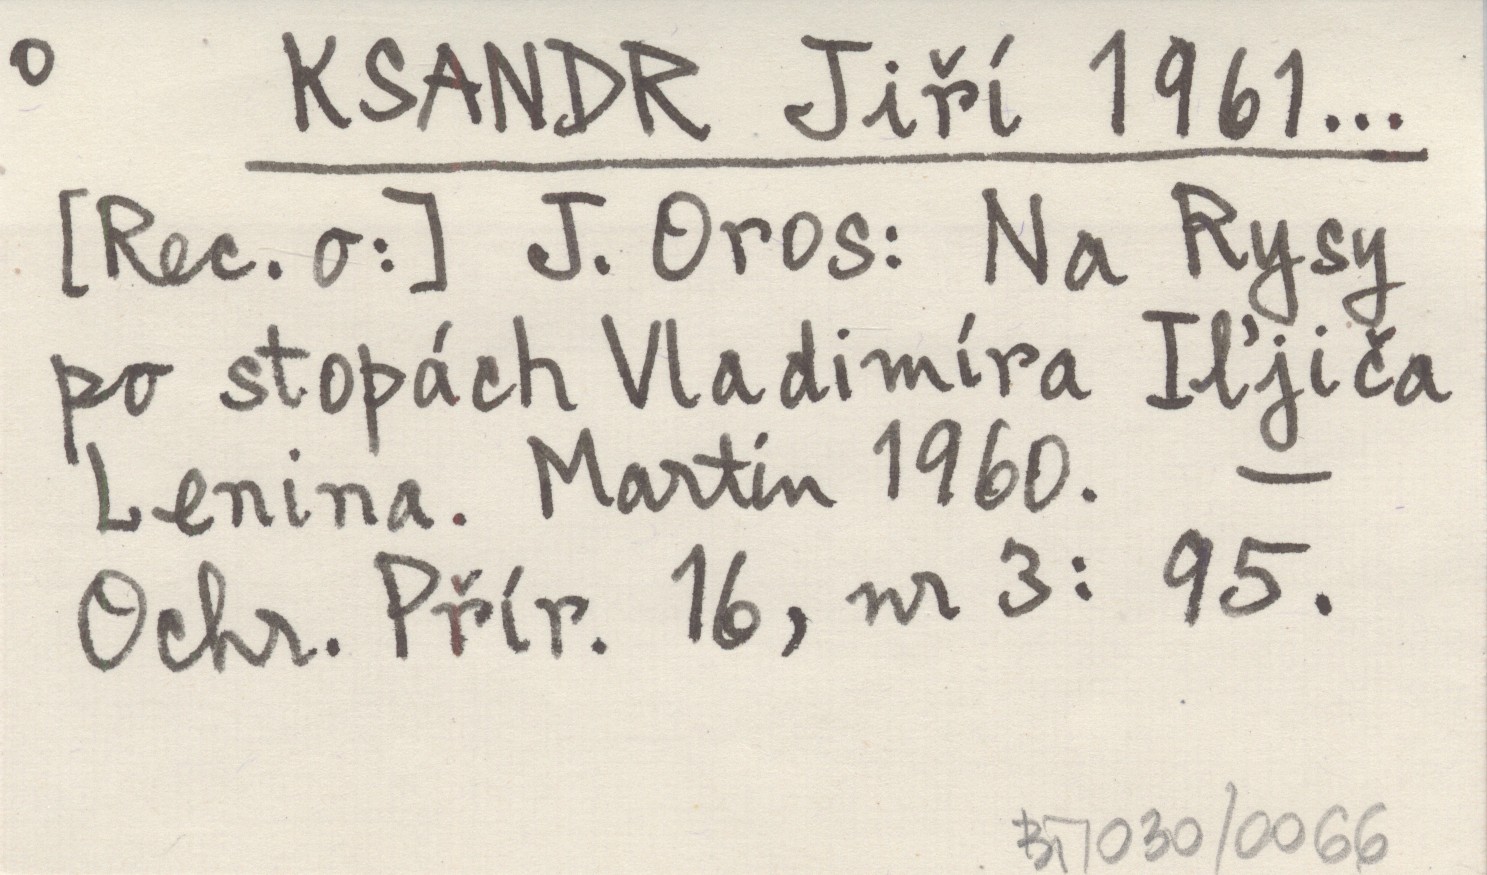 o KSANDR Jiří 1961...
[Rec. o:] J. Oros: Na Rysy
po stopách Vladimíra Iľjiča
Lenina. Martin 1960. —
Ochr. Přír. 16, nr 3: 95.
030/0066